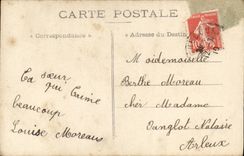 CARTE POSTALE
« Correspondance »
« Adresse du Destin
Ta sœur
qui t'aime
beaucoup
Louise Moreau
Mademoiselle
Berthe Moreau
chez Madame
Danglot Notaire
Arleux